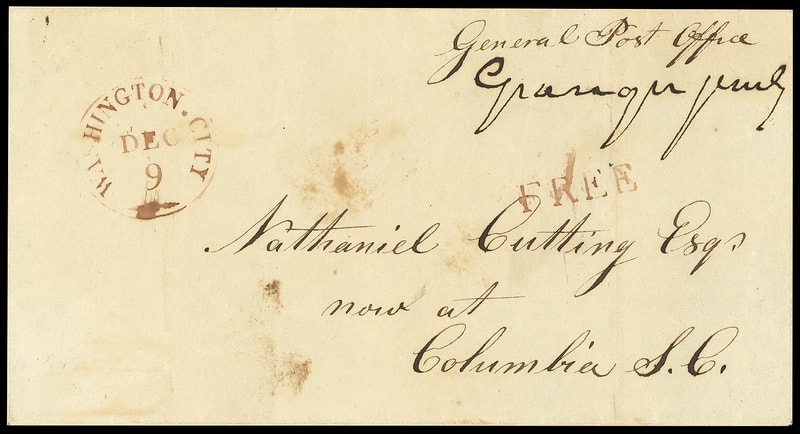 General Post Office
Granger
WASHINGTON. CITY
DEC
9
FREE
Nathaniel Cutting Esqr
now at
Columbia S.C.